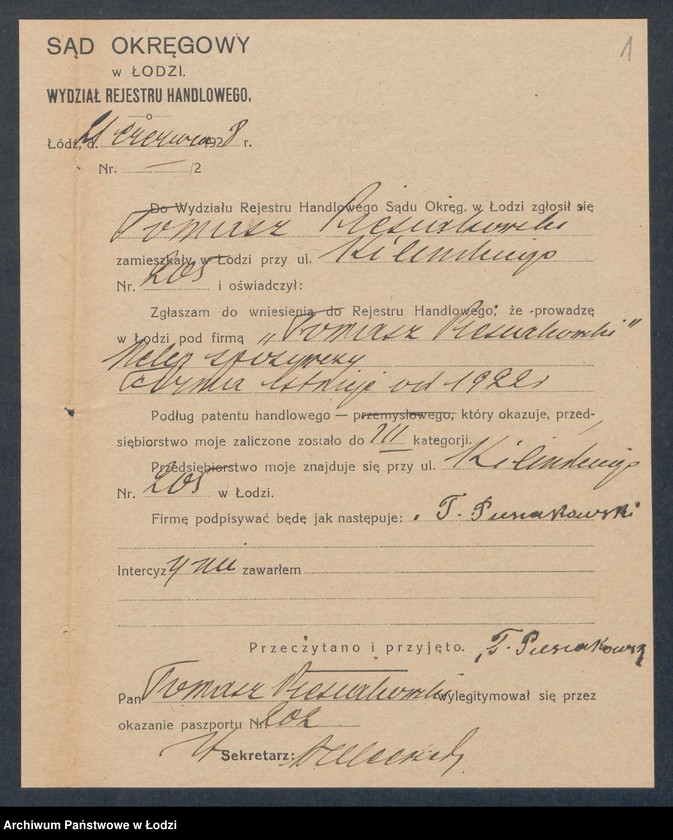 1
SĄD OKRĘGOWY
w ŁODZI.
WYDZIAŁ REJESTRU HANDLOWEGO.
Łódź, d. 21 czerwca 1928 r.
Nr. — /2
Do Wydziału Rejestru Handlowego Sądu Okręg. w Łodzi zgłosił się
Tomasz Piesiakowski
zamieszkały w Łodzi przy ul. Kilińskiego
Nr. 205 i oświadczył:
Zgłaszam do wniesienia do Rejestru Handlowego, że prowadzę
w Łodzi pod firmą „Tomasz Piesiakowski”
sklep spożywczy
Firma istnieje od 1922 r
Podług patentu handlowego — przemysłowego, który okazuje, przed-
siębiorstwo moje zaliczone zostało do III kategorji.
Przedsiębiorstwo moje znajduje się przy ul. Kilińskiego
Nr. 205 w Łodzi.
Firmę podpisywać będę jak następuje: T. Piesiakowski
Intercyzy nie zawarłem
Przeczytano i przyjęto. T. Piesiakowski
Pan Tomasz Piesiakowski wylegitymował się przez
okazanie paszportu Nr. 202
Sekretarz:
Archiwum Państwowe w Łodzi